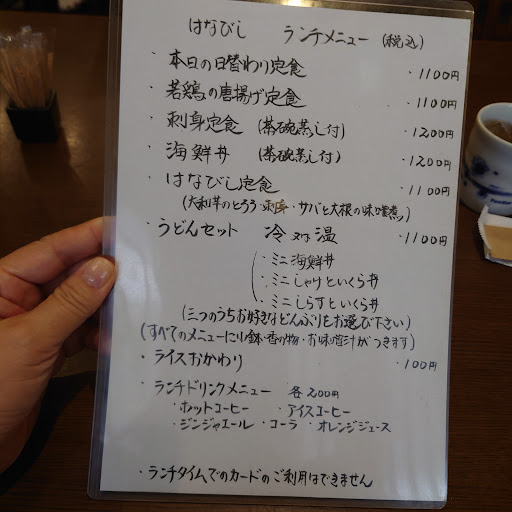 はなびし ランチメニュー (税込)
・本日の日替わり定食 ・1100円
・若鶏の唐揚げ定食 ・1100円
・刺身定食 (茶碗蒸し付) ・1200円
・海鮮丼 (茶碗蒸し付) ・1200円
・はなびし定食 ・1100円
(大和芋のとろろ・ ・サバと大根の味噌煮)
・うどんセット 冷 又は 温 ・1100円
・ミニ海鮮丼
・ミニしゃけといくら丼
・ミニしらすといくら丼
(三つのうちお好きなどんぶりをお選び下さい)
(すべてのメニューに小鉢・香の物・お味噌汁がつきます)
・ライスおかわり ・100円
・ランチドリンクメニュー 各200円
・ホットコーヒー ・アイスコーヒー
・ジンジャエール ・コーラ ・オレンジジュース
・ランチタイムでのカードのご利用はできません